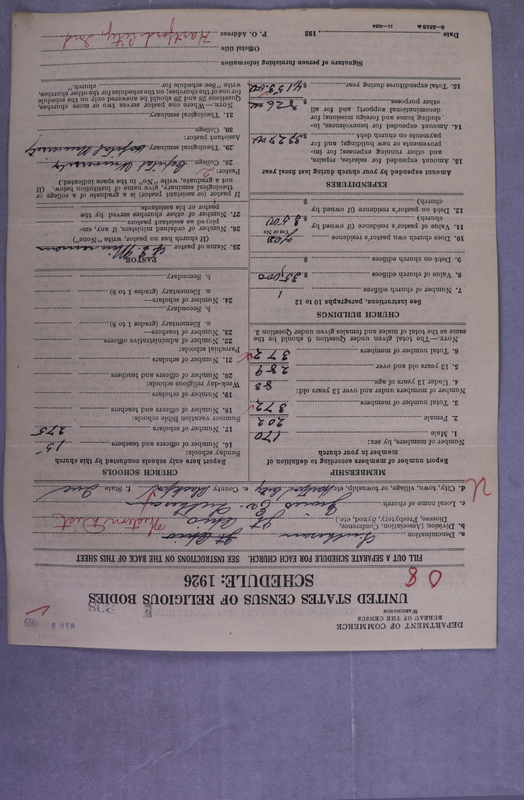 DEPARTMENT OF COMMERCE
BUREAU OF THE CENSUS
WASHINGTON
UNITED STATES CENSUS OF RELIGIOUS BODIES
SCHEDULE: 1926
FILL OUT A SEPARATE SCHEDULE FOR EACH CHURCH. SEE INSTRUCTIONS ON THE BACK OF THIS SHEET
a. Denomination Lutheran Jt Ohio
b. Division (Association, Conference, Diocese, Presbytery, Synod, etc.) Jt Ohio
c. Local name of church
d. City, town, village, or township, etc. Hartford City e. County Blackford f. State Ind
MEMBERSHIP
Report number of members according to definition of member in your church
Number of members, by sex:
1. Male 170
2. Female 202
3. Total number of members 372
Number of members under and over 13 years old:
4. Under 13 years of age 83
5. 13 years old and over 289
6. Total number of members 372
NOTE.—The total given under Question 6 should be the same as the total of males and females given under Question 3.
CHURCH BUILDINGS
See instructions, paragraphs 10 to 12
7. Number of church edifices 1
8. Value of church edifices $ 35,000
9. Debt on church edifices $
10. Does church own pastor's residence yes
(Yes or No)
11. Value of pastor's residence (if owned by church) $ 3,500
12. Debt on pastor's residence (if owned by church) $
EXPENDITURES
Amount expended by your church during last fiscal year
13. Amount expended for salaries, repairs, and other running expenses; for improvements or new buildings; and for payments on church debt
14. Amount expended for benevolences, including home and foreign missions; for denominational support; and for all other purposes
15. Total expenditures during year
CHURCH SCHOOLS
Report here only schools conducted by this church
Sunday schools:
16. Number of officers and teachers 15
17. Number of scholars 275
Summer vacation Bible schools:
18. Number of officers and teachers
19. Number of scholars
Week-day religious schools:
20. Number of officers and teachers
21. Number of scholars
Parochial schools:
22. Number of administrative officers
23. Number of teachers—
a. Elementary (grades 1 to 8)
b. Secondary
24. Number of scholars—
a. Elementary (grades 1 to 8)
b. Secondary
PASTOR
25. Name
(If church has no pastor, write "None")
26. Number of ordained ministers, if any, employed as assistant pastors
27. Number of other churches served by the pastor or his assistants
If pastor (or assistant pastor) is a graduate of a college or theological seminary, give name of institution below. (If not a graduate, write "No" in the space indicated.)
Pastor:
28. College Capital University
29. Theological seminary Capital University
Assistant pastor:
30. College
31. Theological seminary
NOTE.—Where one pastor serves two or more churches, Questions 28 and 29 should be answered only on the schedule for one of the churches; on the schedules for the other churches, write "See schedule for church."
Signature of person furnishing information
Official title
P. O. Address Hartford City, Ind
Date , 192